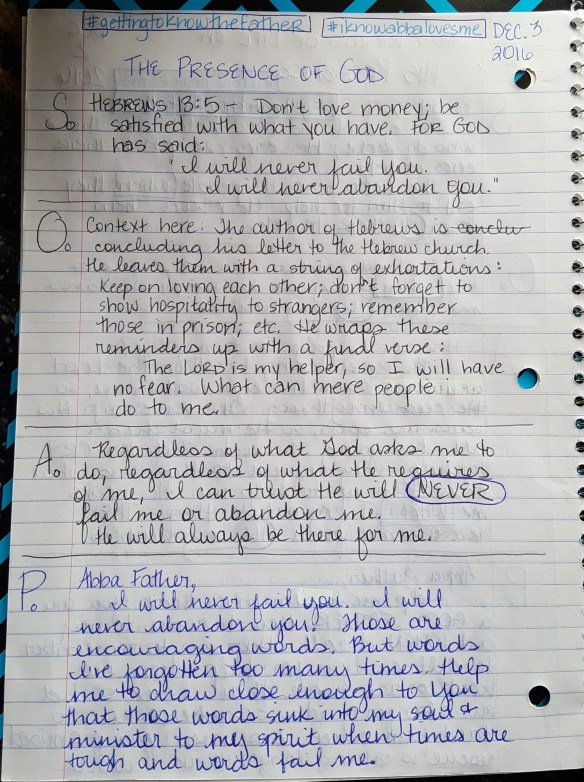 #gettingtoknowtheFatheR #iknowabbalovesme DEC. 3
2016
THE PRESENCE OF GOD
S. HEBREWS 13:5 - Don't love money; be
satisfied with what you have. FOR GOD
has said:
"I will never fail you.
I will never abandon you."
O. Context here: The author of Hebrews is conclu
concluding his letter to the Hebrew church.
He leaves them with a string of exhortations:
Keep on loving each other; don't forget to
show hospitality to strangers; remember
those in prison; etc. He wraps these
reminders up with a final verse:
The LORD is my helper, so I will have
no fear. What can mere people
do to me.
A. Regardless of what God asks me to
do, regardless of what He requires
of me, I can trust He will NEVER
fail me or abandon me.
He will always be there for me.
P. Abba Father,
I will never fail you. I will
never abandon you. Those are
encouraging words. But words
I've forgotten too many times. Help
me to draw close enough to You
that those words sink into my soul &
minister to my spirit when times are
tough and words fail me.